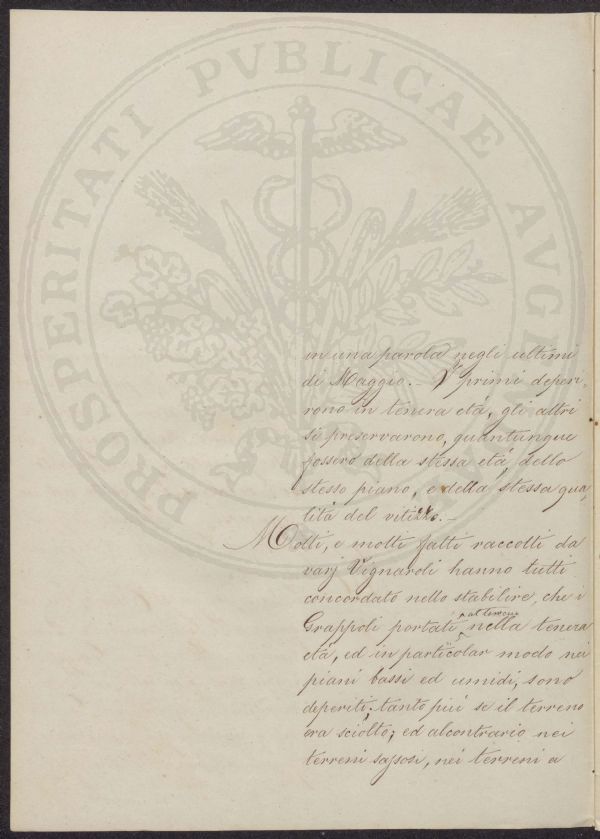 PROSPERITATI PVBLICAE AVGE
in una parola negli ultimi
di Maggio. – I primi deperi-
rono in tenera etá, gli altri
si preservarono, quantunque
fossero della stessa etá, dello
stesso piano, e della stessa qua,
litá del vitizzo. –
Molti, e molti fatti raccolti da
varj Vignaroli hanno tutti
concordato nello stabilire, che i
Grappoli portati nella tenera
etá, ed in particolar modo nei
piani bassi ed umidi, sono
deperiti; tanto piú se il terreno
era sciolto; ed alcontrario nei
terreni sassosi, nei terreni a